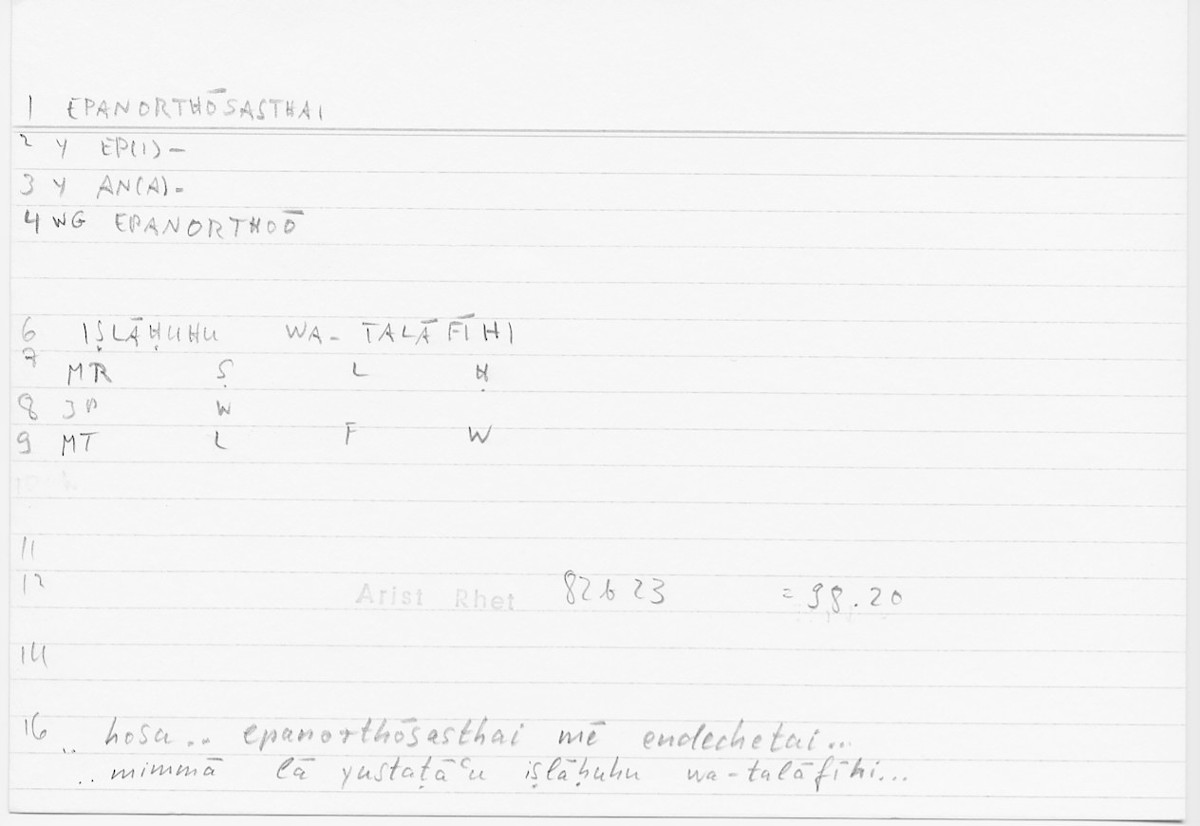 1 EPANORTHŌSASTHAI
2 Y EP(I)-
3 Y AN(A)-
4 WG EPANORTHOŌ
6 IṢLĀḤUHU WA-TALĀFĪHI
7 MR Ṣ L Ḥ
8 3P W
9 MT L F W
11
12 Arist Rhet 82b23 =98.20
14
16 .. hosa.. epanorthōsasthai mē endechetai...
.. mimmā lā yustaṭāʿu iṣlāḥuhu wa-talāfīhi...